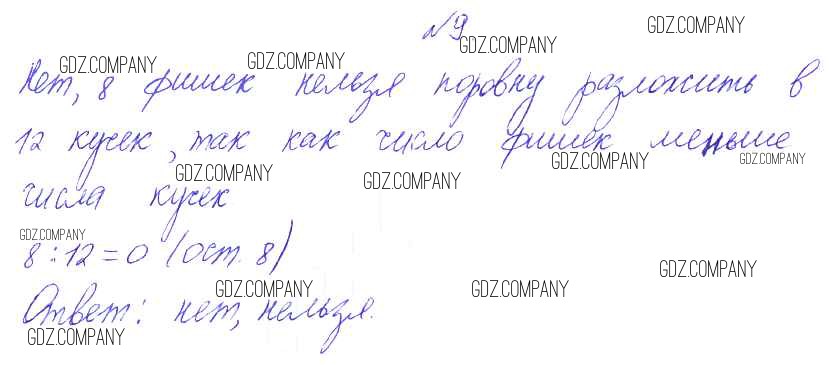 №9
Нет, 8 фишек нельзя поровну разложить в
12 кучек, так как число фишек меньше
числа кучек
8:12=0 (ост. 8)
Ответ: нет, нельзя.
GDZ.COMPANY
GDZ.COMPANY
GDZ.COMPANY
GDZ.COMPANY
GDZ.COMPANY
GDZ.COMPANY
GDZ.COMPANY
GDZ.COMPANY
GDZ.COMPANY
GDZ.COMPANY
GDZ.COMPANY
GDZ.COMPANY
GDZ.COMPANY